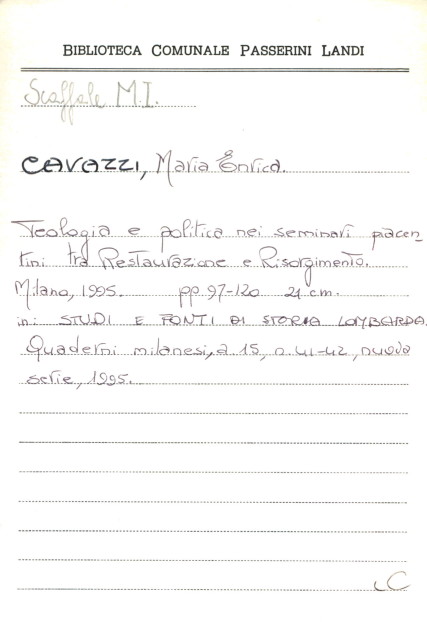 BIBLIOTECA COMUNALE PASSERINI LANDI
Scaffale M.I.
CAVAZZI, Maria Enrica.
Teologia e politica nei seminari piacen-
tini tra Restaurazione e Risorgimento.
Milano, 1995. pp. 97-120 21 cm.
in: STUDI E FONTI DI STORIA LOMBARDA.
Quaderni milanesi, a 15, n. 41-42, nuova
serie, 1995.
LC